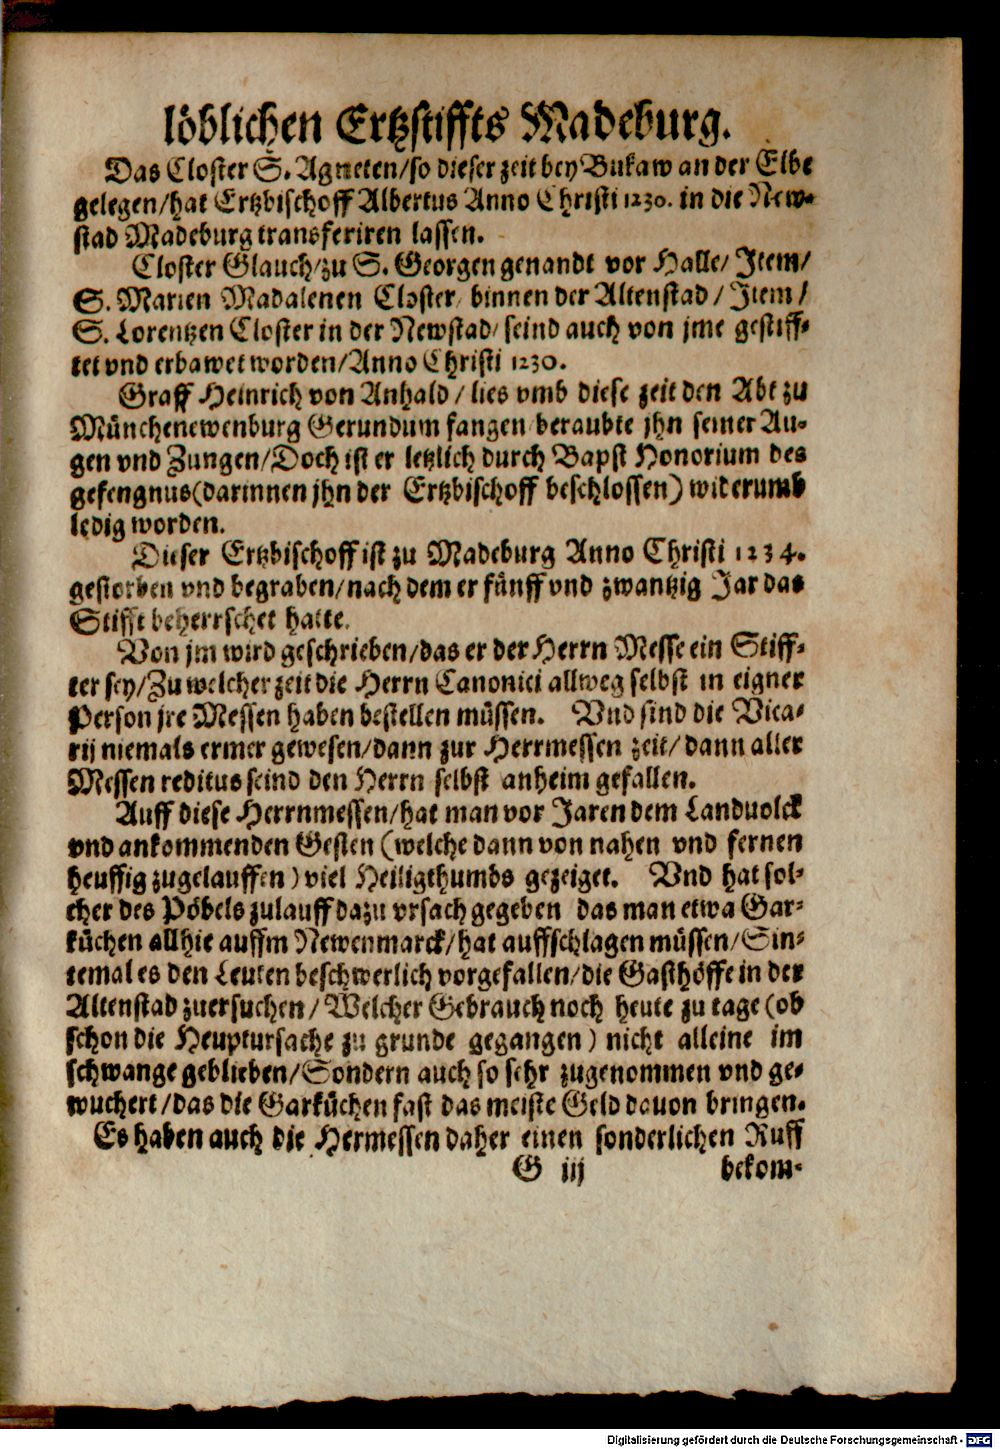 löblichen Ertzstiffts Madeburg.
Das Closter S. Agneten/so dieser zeit bey Bukaw an der Elbe
gelegen/hat Ertzbischoff Albertus Anno Christi 1230. in die New-
stad Madeburg transferiren lassen.
Closter Glauch/zu S. Georgen genandt vor Halle/ Item/
S. Marien Madalenen Closter/ binnen der Altenstad / Item /
S. Lorentzen Closter in der Newstad/ seind auch von jme gestiff-
tet vnd erbawet worden/Anno Christi 1230.
Graff Heinrich von Anhald / lies vmb diese zeit den Abt zu
Münchenewenburg Gerundum fangen beraubte jhn seiner Au-
gen vnd Zungen/Doch ist er letzlich durch Bapst Honorium des
gefengnus(darinnen jhn der Ertzbischoff beschlossen) widerumb
ledig worden.
Dieser Ertzbischoff ist zu Madeburg Anno Christi 1234.
gestorben vnd begraben/nach dem er fünff vnd zwantzig Jar das
Stifft beherrschet hatte.
Von jm wird geschrieben/das er der Herrn Messe ein Stiff-
ter sey/Zu welcher zeit die Herrn Canonici allweg selbst in eigner
Person jre Messen haben bestellen müssen. Vnd sind die Vica-
rij niemals ermer gewesen/dann zur Herrmessen zeit/ dann aller
Messen reditus seind den Herrn selbst anheim gefallen.
Auff diese Herrnmessen/hat man vor Jaren dem Landuolck
vnd ankommenden Gesten (welche dann von nahen vnd fernen
heuffig zugelauffen) viel Heiligthumbs gezeiget. Vnd hat sol-
cher des Pöbels zulauff dazu vrsach gegeben das man etwa Gar-
küchen allhie auffm Newenmarck/hat auffschlagen müssen/Sin-
temal es den Leuten beschwerlich vorgefallen/die Gasthöffe in der
Altenstad zuersuchen / Welcher Gebrauch noch heute zu tage (ob
schon die Heuptursache zu grunde gegangen) nicht alleine im
schwange geblieben/Sondern auch so sehr zugenommen vnd ge-
wuchert/das die Garküchen fast das meiste Geld dauon bringen.
Es haben auch die Hermessen daher einen sonderlichen Ruff
G iij bekom-
Digitalisierung gefördert durch die Deutsche Forschungsgemeinschaft - DFG